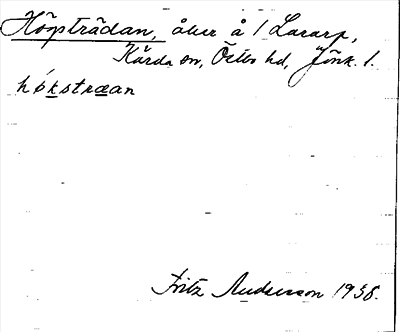 Högsträdan, åker å 1 Lararp,
Kärda sn, Östbo hd, Jönk. l.
hökstræan
Fritz Andersson 1938.